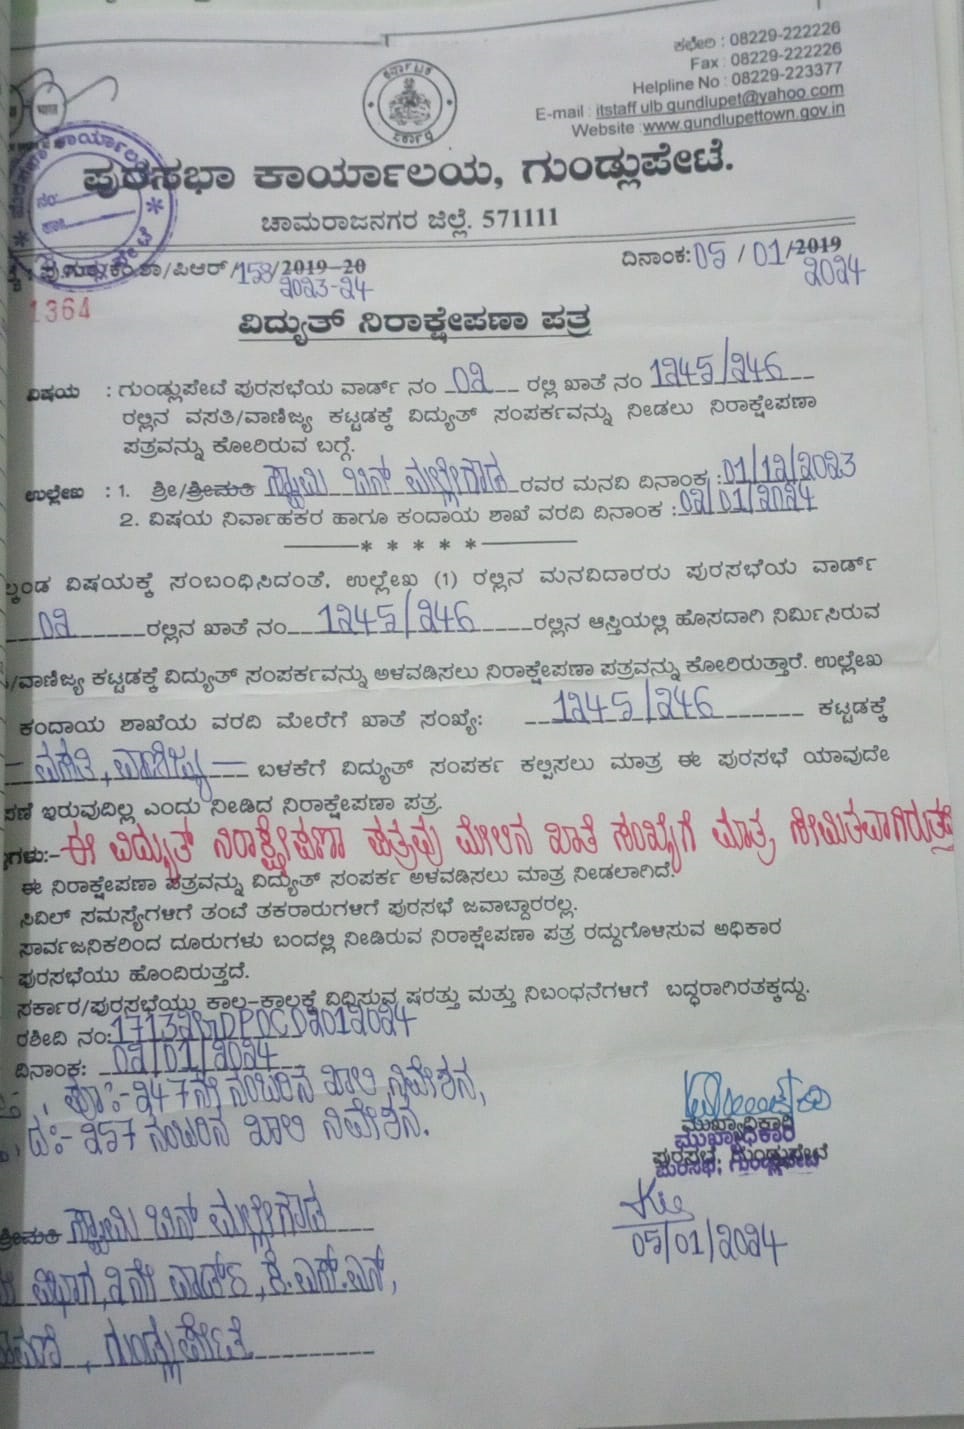 ಕಛೇರಿ : 08229-222226
Fax : 08229-222226
Helpline No : 08229-223377
E-mail : itstaff ulb gundlupet@yahoo.com
Website :www.gundlupettown.gov.in
ಪುರಸಭಾ ಕಾರ್ಯಾಲಯ, ಗುಂಡ್ಲುಪೇಟೆ.
ಚಾಮರಾಜನಗರ ಜಿಲ್ಲೆ. 571111
/ಪಿಆರ್/158/2019-20 ದಿನಾಂಕ:05/01/2019
2023-24 2024
1364
ವಿದ್ಯುತ್ ನಿರಾಕ್ಷೇಪಣಾ ಪತ್ರ
ವಿಷಯ : ಗುಂಡ್ಲುಪೇಟೆ ಪುರಸಭೆಯ ವಾರ್ಡ್ ನಂ 02 ರಲ್ಲಿ ಖಾತೆ ನಂ 1245/246
ರಲ್ಲಿನ ವಸತಿ/ವಾಣಿಜ್ಯ ಕಟ್ಟಡಕ್ಕೆ ವಿದ್ಯುತ್ ಸಂಪರ್ಕವನ್ನು ನೀಡಲು ನಿರಾಕ್ಷೇಪಣಾ
ಪತ್ರವನ್ನು ಕೋರಿರುವ ಬಗ್ಗೆ.
ಉಲ್ಲೇಖ : 1. ಶ್ರೀ/ಶ್ರೀಮತಿ ಸ್ವಾಮಿ ಬಿನ್ ಮಲ್ಲೇಗೌಡ ರವರ ಮನವಿ ದಿನಾಂಕ :01/12/2023
2. ವಿಷಯ ನಿರ್ವಾಹಕರ ಹಾಗೂ ಕಂದಾಯ ಶಾಖೆ ವರದಿ ದಿನಾಂಕ :02/01/2024
* * * * *
ವಿಷಯಕ್ಕೆ ಸಂಬಂಧಿಸಿದಂತೆ, ಉಲ್ಲೇಖ (1) ರಲ್ಲಿನ ಮನವಿದಾರರು ಪುರಸಭೆಯ ವಾರ್ಡ್
02 ರಲ್ಲಿನ ಖಾತೆ ನಂ 1245/246 ರಲ್ಲಿನ ಆಸ್ತಿಯಲ್ಲಿ ಹೊಸದಾಗಿ ನಿರ್ಮಿಸಿರುವ
/ವಾಣಿಜ್ಯ ಕಟ್ಟಡಕ್ಕೆ ವಿದ್ಯುತ್ ಸಂಪರ್ಕವನ್ನು ಅಳವಡಿಸಲು ನಿರಾಕ್ಷೇಪಣಾ ಪತ್ರವನ್ನು ಕೋರಿರುತ್ತಾರೆ. ಉಲ್ಲೇಖ
ಕಂದಾಯ ಶಾಖೆಯ ವರದಿ ಮೇರೆಗೆ ಖಾತೆ ಸಂಖ್ಯೆ: 1245/246 ಕಟ್ಟಡಕ್ಕೆ
ವಸತಿ, ವಾಣಿಜ್ಯ ಬಳಕೆಗೆ ವಿದ್ಯುತ್ ಸಂಪರ್ಕ ಕಲ್ಪಿಸಲು ಮಾತ್ರ ಈ ಪುರಸಭೆ ಯಾವುದೇ
ಇರುವುದಿಲ್ಲ ಎಂದು ನೀಡಿದ ನಿರಾಕ್ಷೇಪಣಾ ಪತ್ರ.
ಈ ವಿದ್ಯುತ್ ನಿರಾಕ್ಷೇಪಣಾ ಪತ್ರವು ಮೇಲಿನ ಖಾತೆ ಸಂಖ್ಯೆಗೆ ಮಾತ್ರ ಸೀಮಿತವಾಗಿರುತ್ತದೆ
ಈ ನಿರಾಕ್ಷೇಪಣಾ ಪತ್ರವನ್ನು ವಿದ್ಯುತ್ ಸಂಪರ್ಕ ಅಳವಡಿಸಲು ಮಾತ್ರ ನೀಡಲಾಗಿದೆ.
ಸಿವಿಲ್ ಸಮಸ್ಯೆಗಳಿಗೆ ತಂಟೆ ತಕರಾರುಗಳಿಗೆ ಪುರಸಭೆ ಜವಾಬ್ದಾರರಲ್ಲ.
ಸಾರ್ವಜನಿಕರಿಂದ ದೂರುಗಳು ಬಂದಲ್ಲಿ ನೀಡಿರುವ ನಿರಾಕ್ಷೇಪಣಾ ಪತ್ರ ರದ್ದುಗೊಳಿಸುವ ಅಧಿಕಾರ
ಪುರಸಭೆಯು ಹೊಂದಿರುತ್ತದೆ.
ಸರ್ಕಾರ/ಪುರಸಭೆಯು ಕಾಲ-ಕಾಲಕ್ಕೆ ವಿಧಿಸುವ ಷರತ್ತು ಮತ್ತು ನಿಬಂಧನೆಗಳಿಗೆ ಬದ್ಧರಾಗಿರತಕ್ಕದ್ದು.
ರಶೀದಿ ನಂ:
ದಿನಾಂಕ: 02/01/2024
ಪೂ:- 247ನೇ ನಂಬರಿನ ಖಾಲಿ ನಿವೇಶನ,
ದ:- 257 ನಂಬರಿನ ಖಾಲಿ ನಿವೇಶನ.
ಮುಖ್ಯಾಧಿಕಾರಿ
ಪುರಸಭೆ, ಗುಂಡ್ಲುಪೇಟೆ
05/01/2024
ಶ್ರೀಮತಿ ಸ್ವಾಮಿ ಬಿನ್ ಮಲ್ಲೇಗೌಡ
ವಿಭಾಗ, 2ನೇ ವಾರ್ಡ್, ಕೆ.ಎಸ್.ಎನ್,
ಗುಂಡ್ಲುಪೇಟೆ